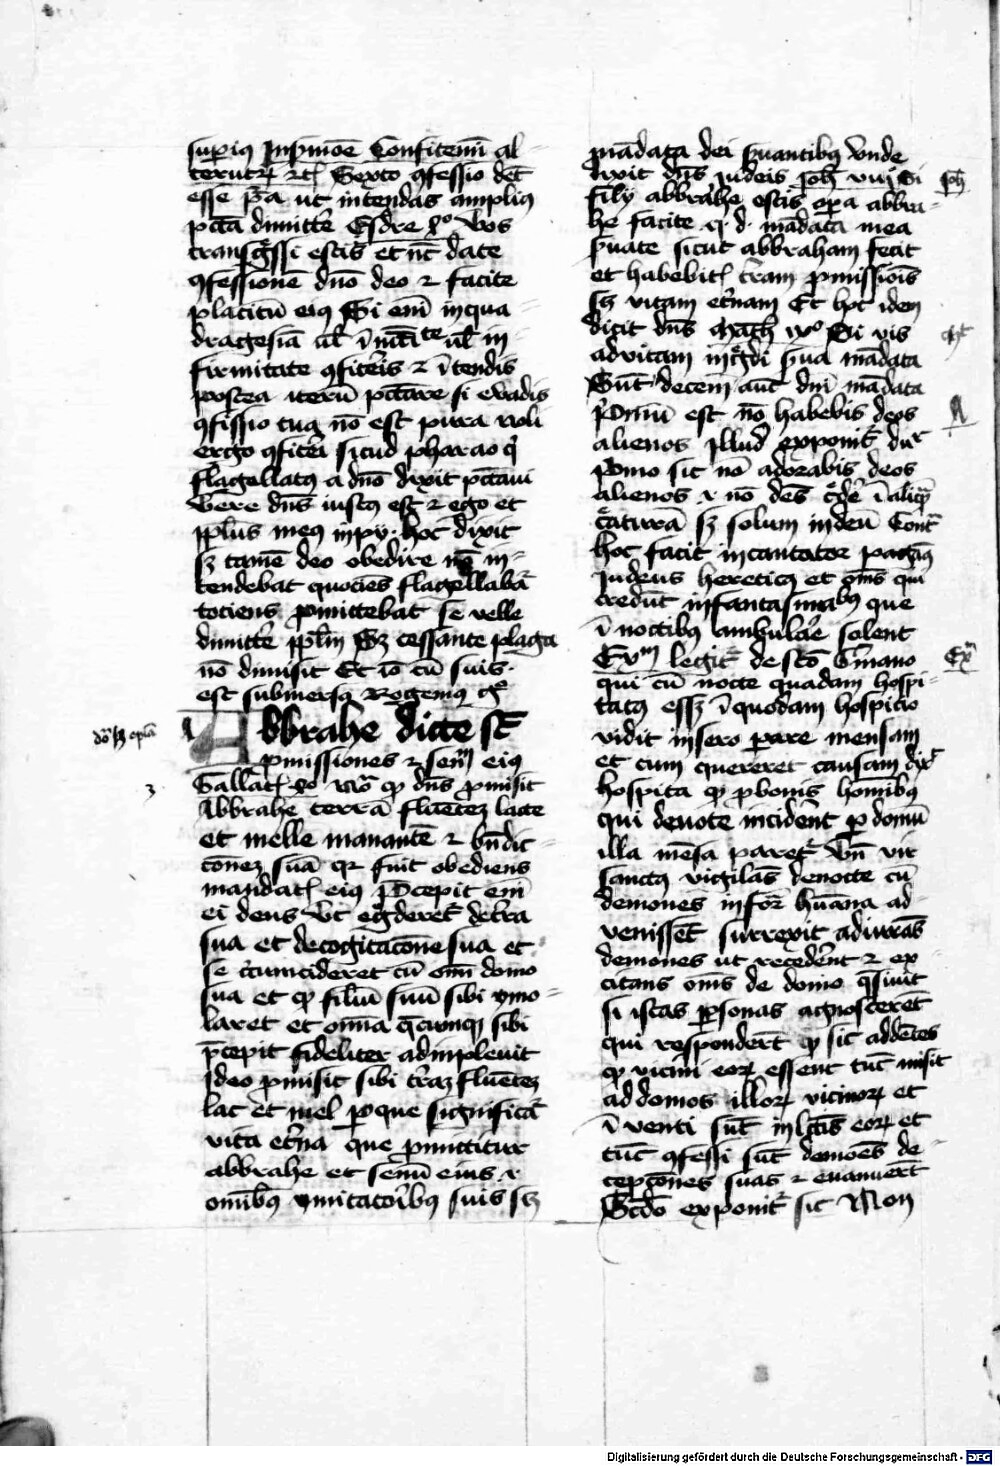 superius In sermone Confitemini al-
terutrum etc Sexto confessio debet
esse pura ut intendas amplius
peccata dimittere Esdre xo Vos
transgressi estis et nunc date
confessionem domino deo et facite
placitum eius Si enim in qua-
dragesima uel uel in-
firmitate confiteris et intendis
postea iterum peccare si evadis
confessio tua non est pura noli
ergo confiteri sicud pharao qui
flagellatus a domino dixit peccaui
Vere dominus iustus est et ego et
populus meus impii hoc dixit
sed tamen deo obedire non in-
tendebat quociens flagellabatur
tociens promittebat se velle
dimittere populum Sed cessante plaga
non dimisit Et ideo cum suis
est submersus Rogemus ergo
Abbrahe dicte sunt
promissiones et semini eius
Gallat quod dominus promisit
Abbrahe terram fluentem lacte
et melle manantem et benedic-
tionem suam quia fuit obediens
mandatis eius Precepit enim
ei deus vt egrederetur de terra
sua et de cognacione sua et
se circumcideret cum omni domo
sua et quod filium suum sibi ymo-
laret et omnia quecumque sibi
precepit fideliter adimplevit
Ideo promisit sibi terram fluentem
lac et mel per que significatur
vita eterna que promittitur
abbrahe et semini eius
omnibus ymitatoribus suis scilicet
mandata dei seruantibus Vnde
dixit dominus iudeis Joh viij Si
filij abbrahe estis opera abbra-
he facite q d mandata mea
seruate sicut abbraham fecit
et habebitis terram promissionis
scilicet vitam eternam Et hoc idem
dicit dominus Math ixo Si vis
ad vitam ingredi serua mandata
Sunt decem autem domini mandata
Primum est non habebis deos
alienos Illud exponitur
Primo sic non adorabis deos
alienos et non debes credere in aliquam
creaturam sed solum in deum Contra
hoc facit incantator paganus
Judeus hereticus et omnes qui
credunt in fantasmatibus que
in noctibus ambulare solent
Exm legitur de sancto Germano
qui cum nocte quadam hospi-
tatus esset in quodam hospicio
vidit in sero parare mensam
et cum quereret causam dixit
hospita quod pro bonis hominibus
qui de nocte incederent per domum
illa mensa paretur Vnde vir
sanctus vigilans de nocte cum
demones in forma humana ad-
venissent surrexit adiurans
demones ut recederent et ex-
citans omnes de domo quesiuit
si istas personas agnoscerent
qui responderunt quod sic addentes
quod vicini eorum essent tunc misit
ad domos illorum vicinorum et
inventi sunt in lectis eorum et
tunc confessi sunt demones de-
cepciones suas et evanuerunt
Secundo exponitur sic Non
Joh
A
Exm
Digitalisierung gefördert durch die Deutsche Forschungsgemeinschaft - DFG